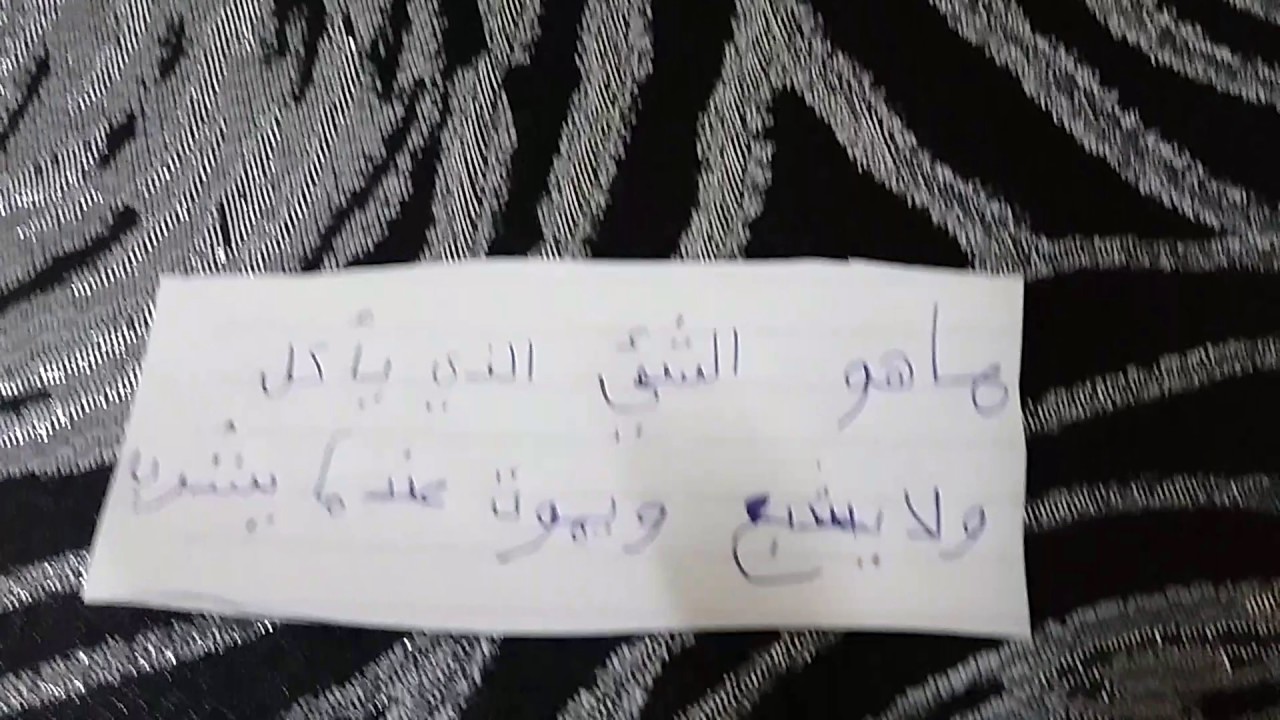 ماهو الشيّ الذي يأكل
ولا يشبع ويموت عندما يشرب